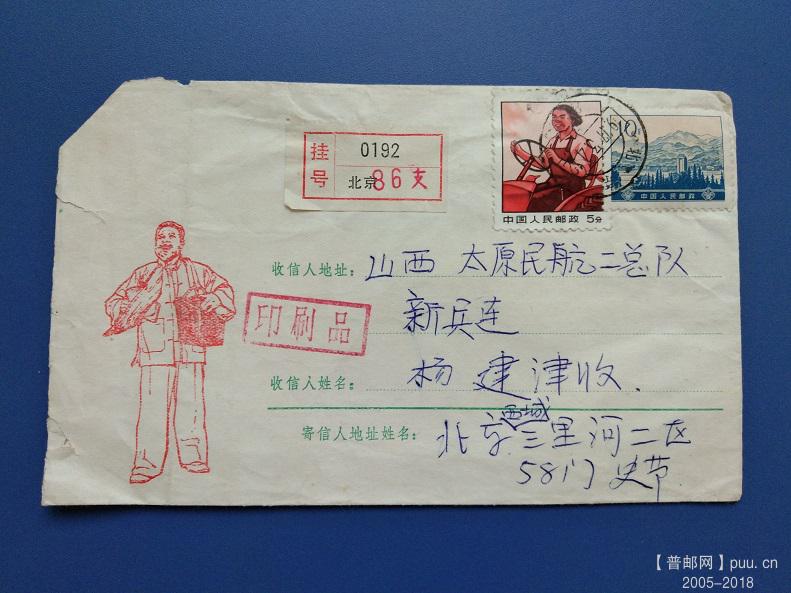 挂号
0192
北京86支
中国人民邮政 5分
中国人民邮政
收信人地址: 山西 太原民航二总队
新兵连
印刷品
收信人姓名: 杨建津收.
西城
寄信人地址姓名: 北京三里河二区
58门 史节
【普邮网】puu.cn
2005-2018